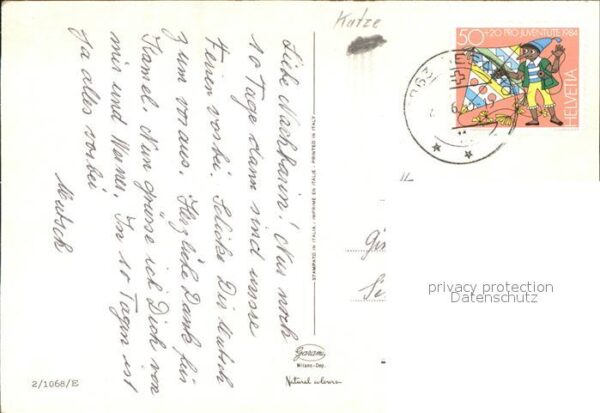 Katze
50+20 PRO JUVENTUTE 1984
HELVETIA
Liebe Nachbarin! Nur noch
10 Tage dann sind unsre
Ferien vorbei. Schicke Dir Mutsch
zum voraus. Herzliche Dank für
Kamel. Nun grüsse ich Dich von
mir und Werner. In 10 Tagen ist
ja alles vorbei
Mutsch
STAMPATO IN ITALIA - IMPRIMÉ EN ITALIE - PRINTED IN ITALY
privacy protection
Datenschutz
Garami
Milano-Dep.
Natural colours
2/1068/E